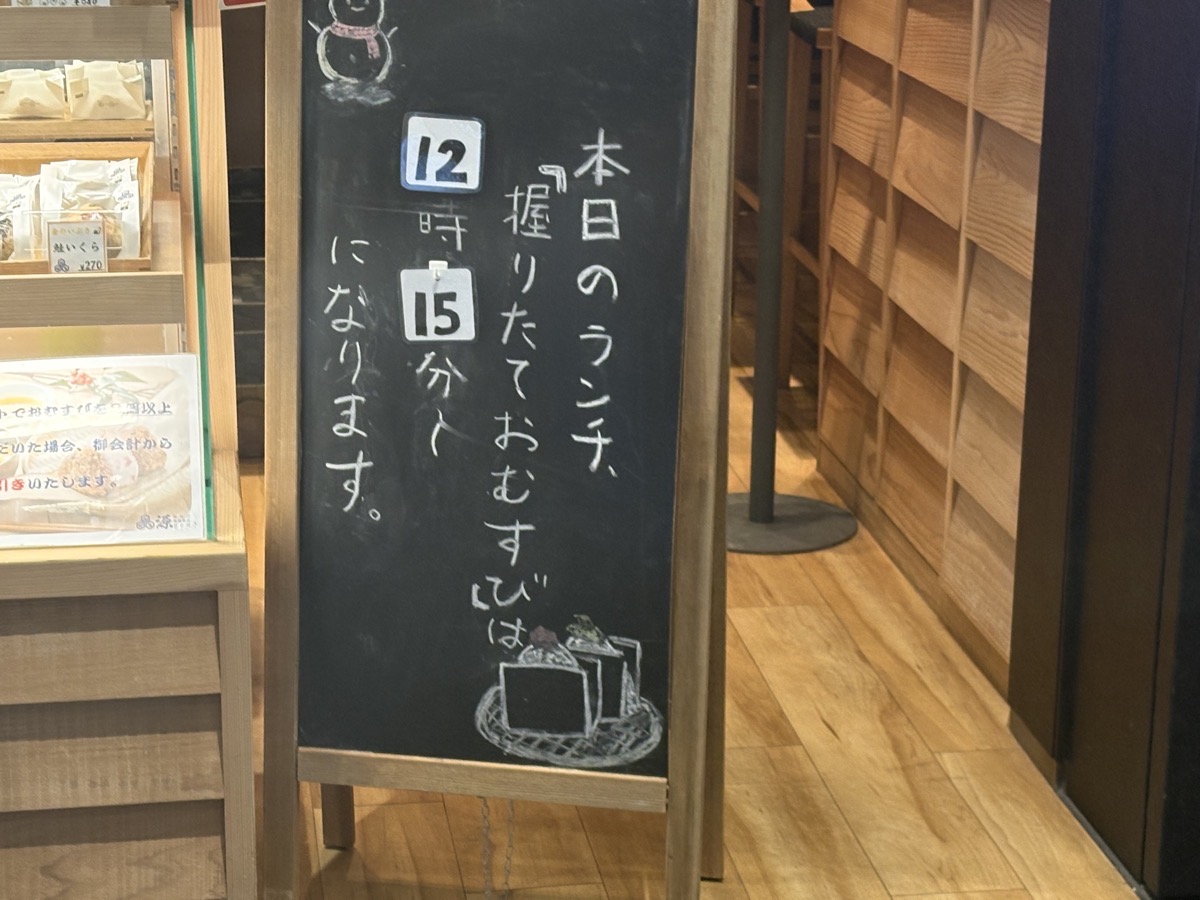 本日のランチ、
『握りたておむすび』は
12時15分〜
になります。
鮭いくら
¥270
いた場合、御会計から
引きいたします。
源